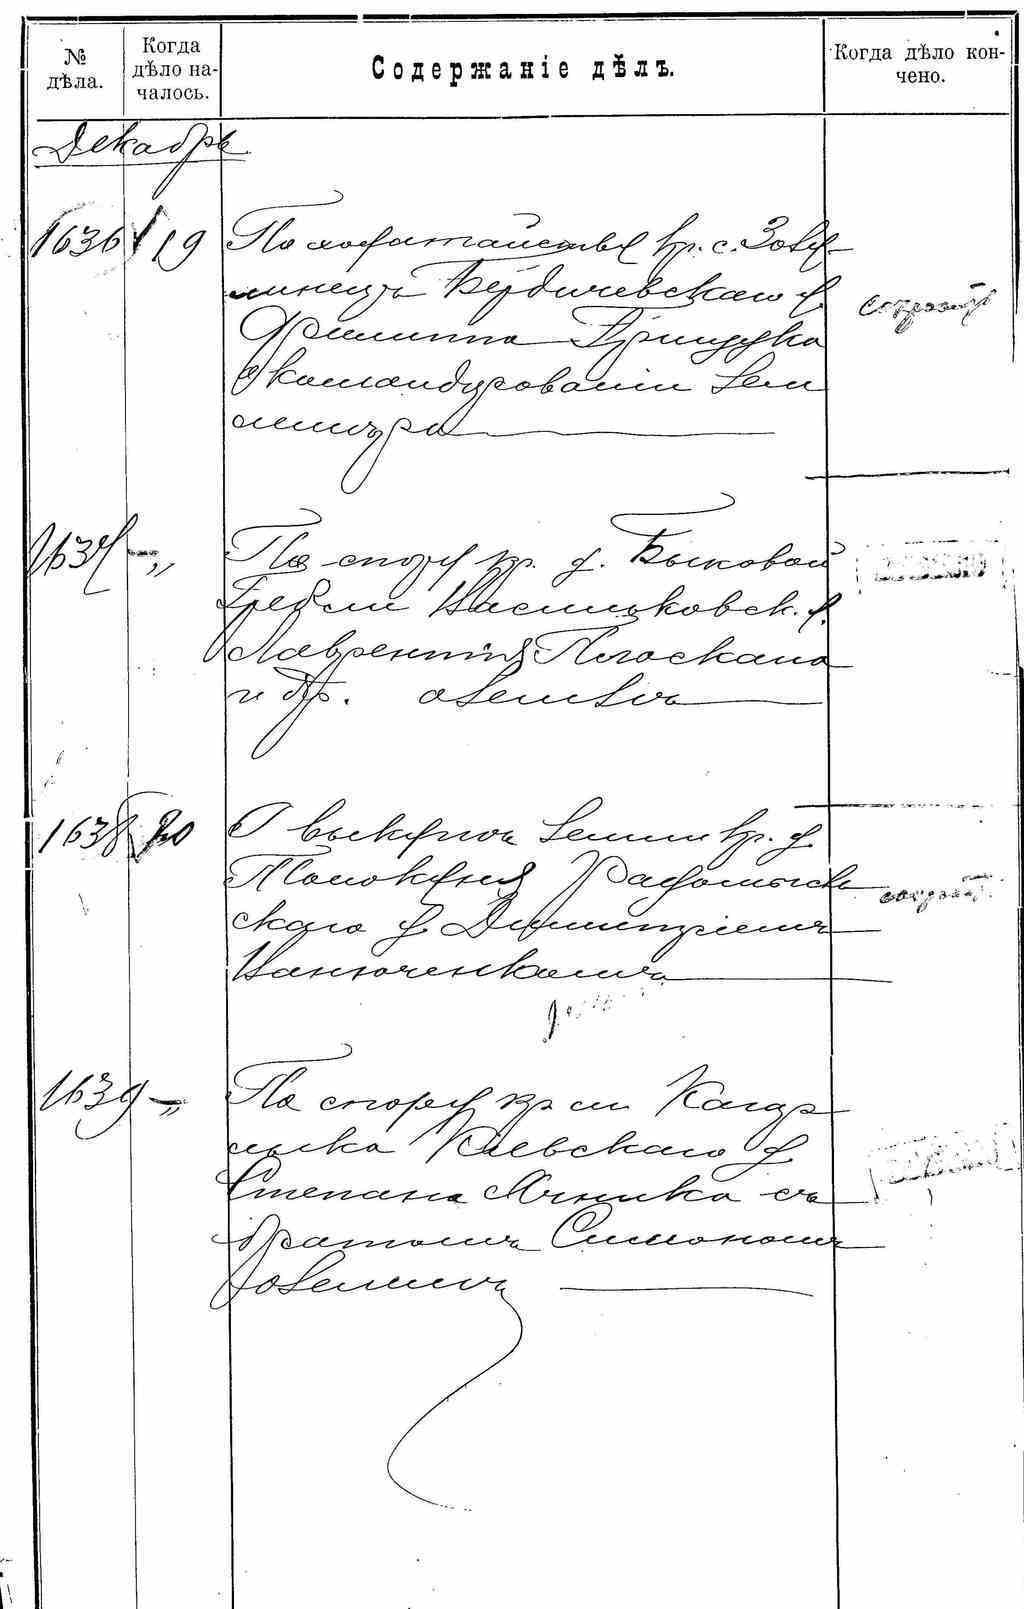 № дѣла.
Когда дѣло на-
чалось.
Содержаніе дѣлъ.
Когда дѣло кон-
чено.
Декабрь
1636 19 По ходатайству кр. с.
Бердичевскаго у.
Филиппа Грищука
о командированіи земле
мѣра
1637 -„ По спору кр. д. Быковой
Гребли Васильковск. у.
Лаврентія Плоскаго
и др. о землѣ
1638 20 О выкупѣ земли кр. д.
Радомысль
скаго у Димитріемъ
1639 -„ По спору кр м Кагар
лыка Кіевскаго у
Степана Ячника съ
братомъ Симономъ
о землѣ